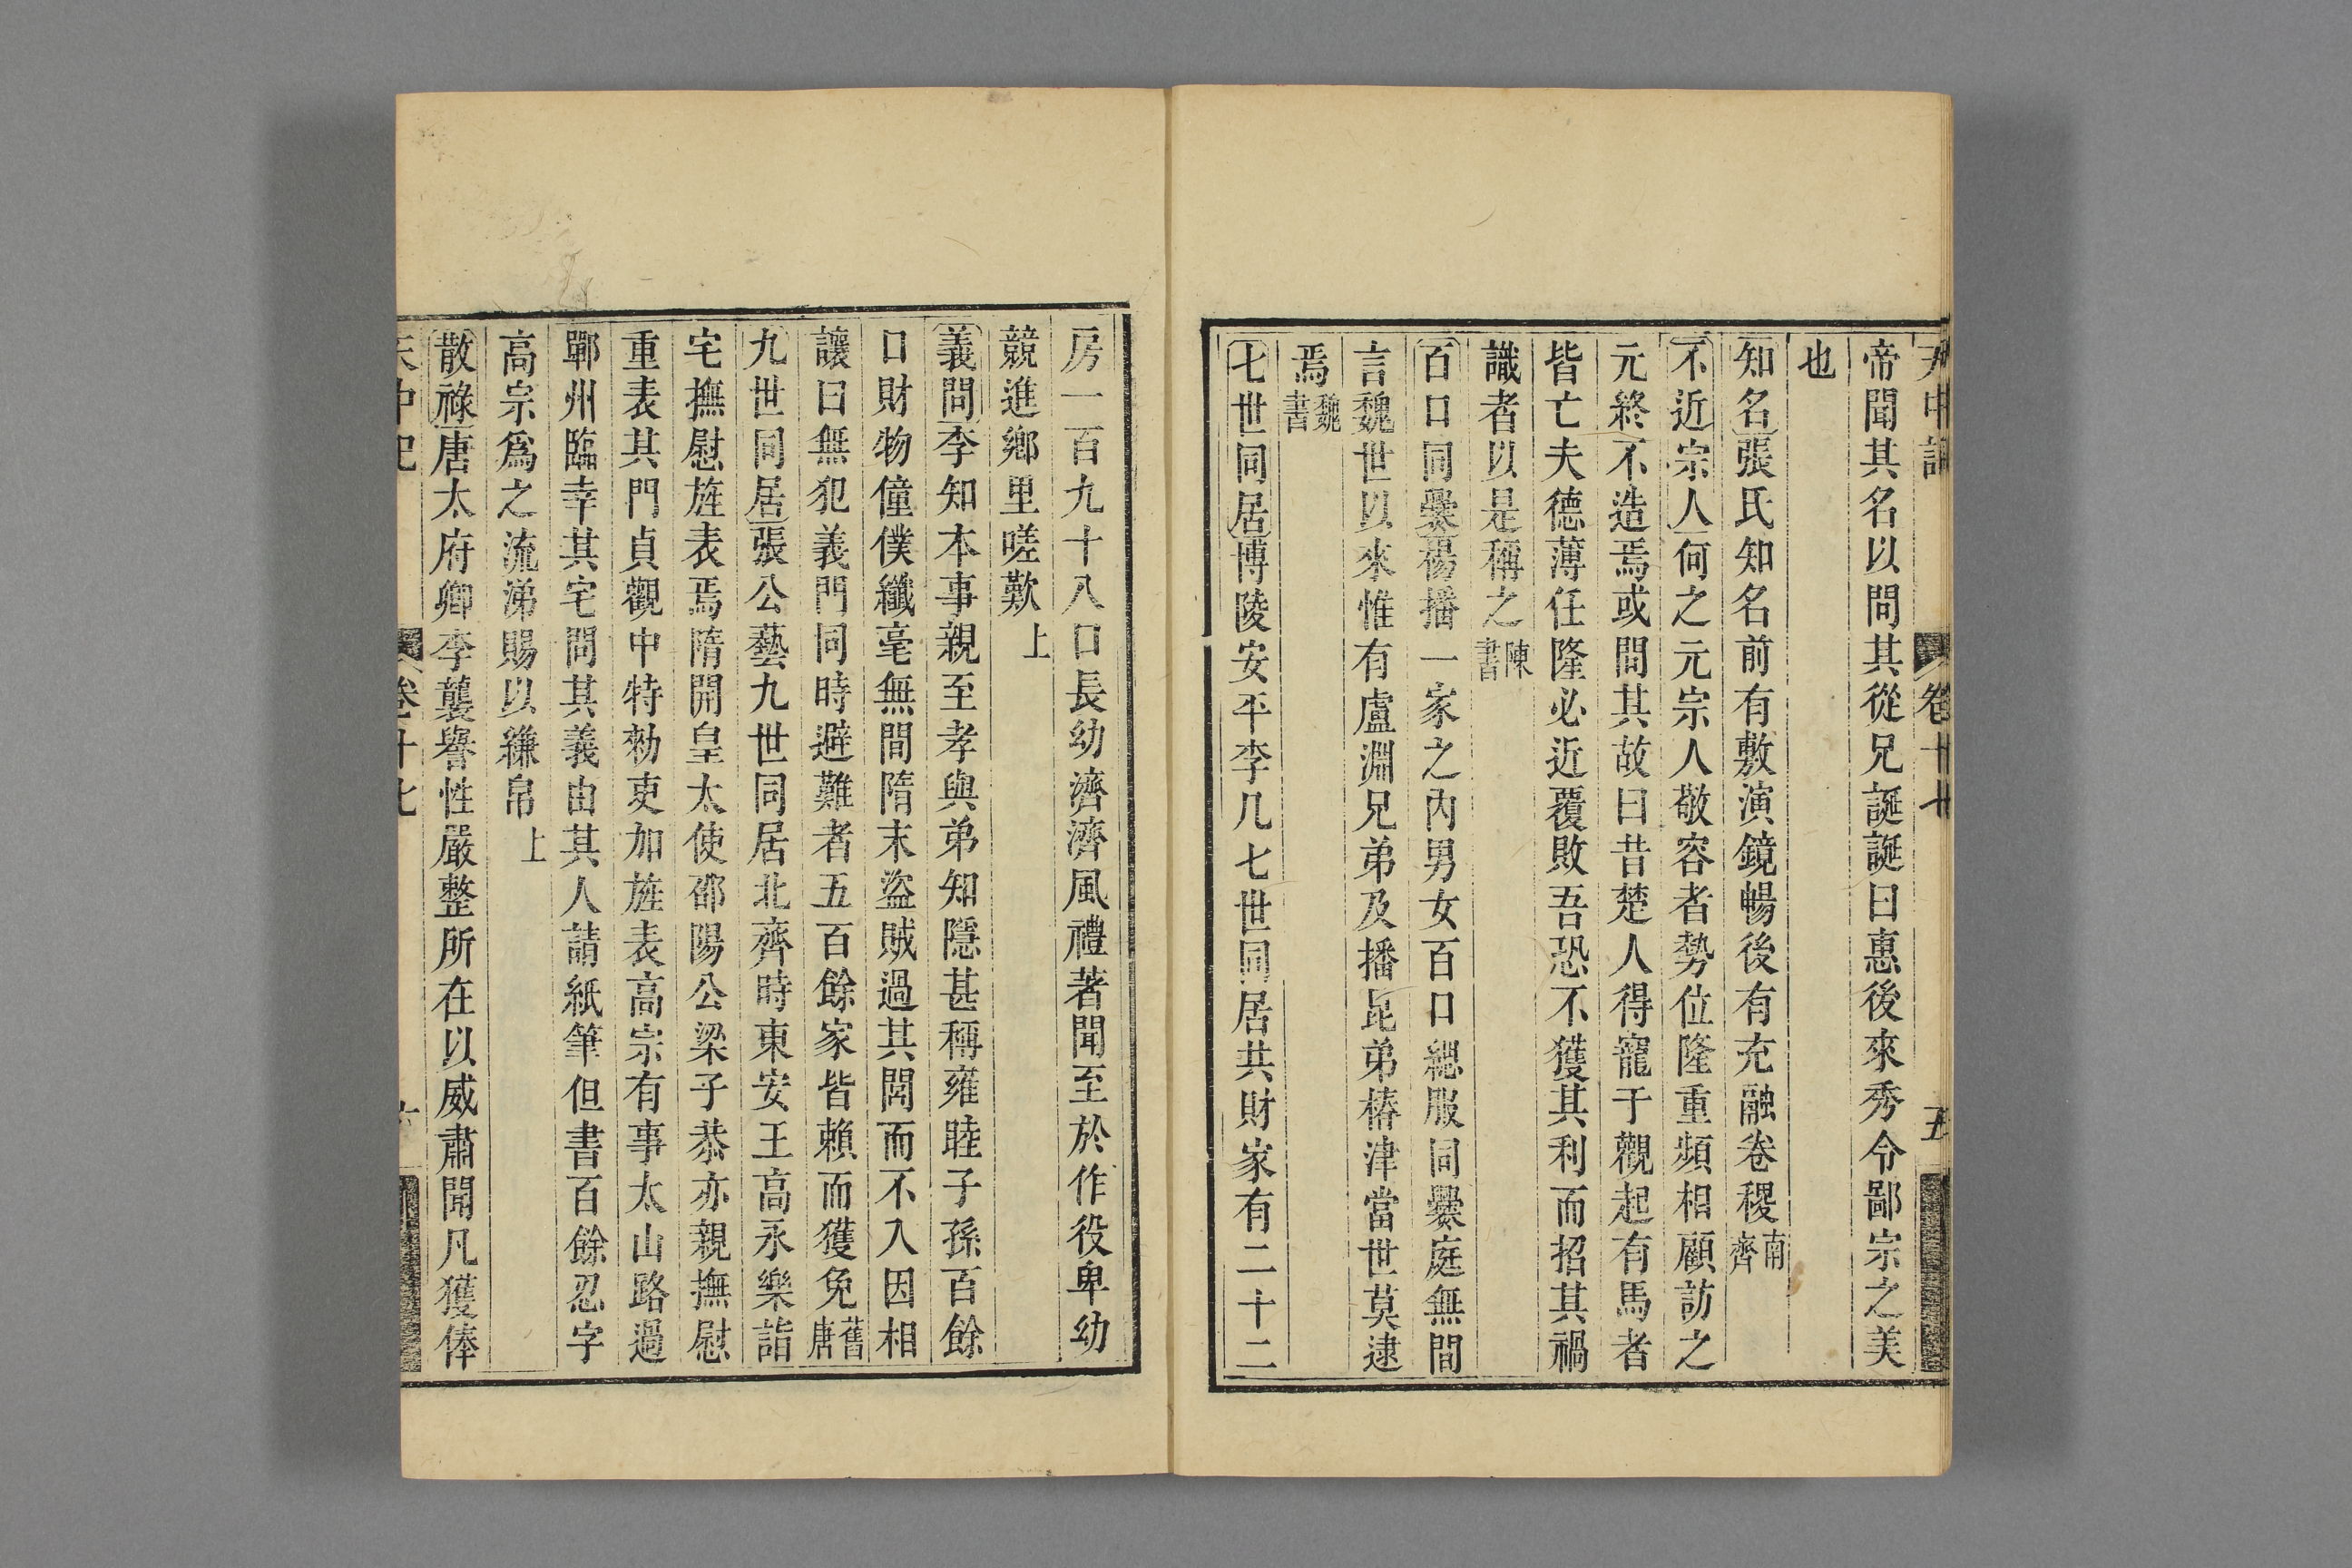 天中記 卷十七 五
帝聞其名以問其從兄誕誕曰惠後來秀令鄙宗之美
也
知名張氏知名前有敷演鏡暢後有充融卷稷南齊
不近宗人何之元宗人敬容者勢位隆重頻相顧訪之
元終不造焉或問其故曰昔楚人得寵于觀起有馬者
皆亡夫德薄任隆必近覆敗吾恐不獲其利而招其禍
識者以是稱之陳書
百口同爨楊播一家之內男女百口緦服同爨庭無間
言魏世以來惟有盧淵兄弟及播昆弟椿津當世莫逮
焉魏書
七世同居博陵安平李几七世同居共財家有二十二
房一百九十八口長幼濟濟風禮著聞至於作役卑幼
競進鄉里嗟歎上
義問李知本事親至孝與弟知隱甚稱雍睦子孫百餘
口財物僮僕纖毫無間隋末盜賊過其閭而不入因相
讓曰無犯義門同時避難者五百餘家皆賴而獲免舊唐
九世同居張公藝九世同居北齊時東安王高永樂詣
宅撫慰旌表焉隋開皇太使邵陽公梁子恭亦親撫慰
重表其門貞觀中特勑吏加旌表高宗有事太山路過
鄆州臨幸其宅問其義由其人請紙筆但書百餘忍字
高宗爲之流涕賜以縑帛上
散祿唐太府卿李襲譽性嚴整所在以威肅聞凡獲俸
天中記 卷十七 六